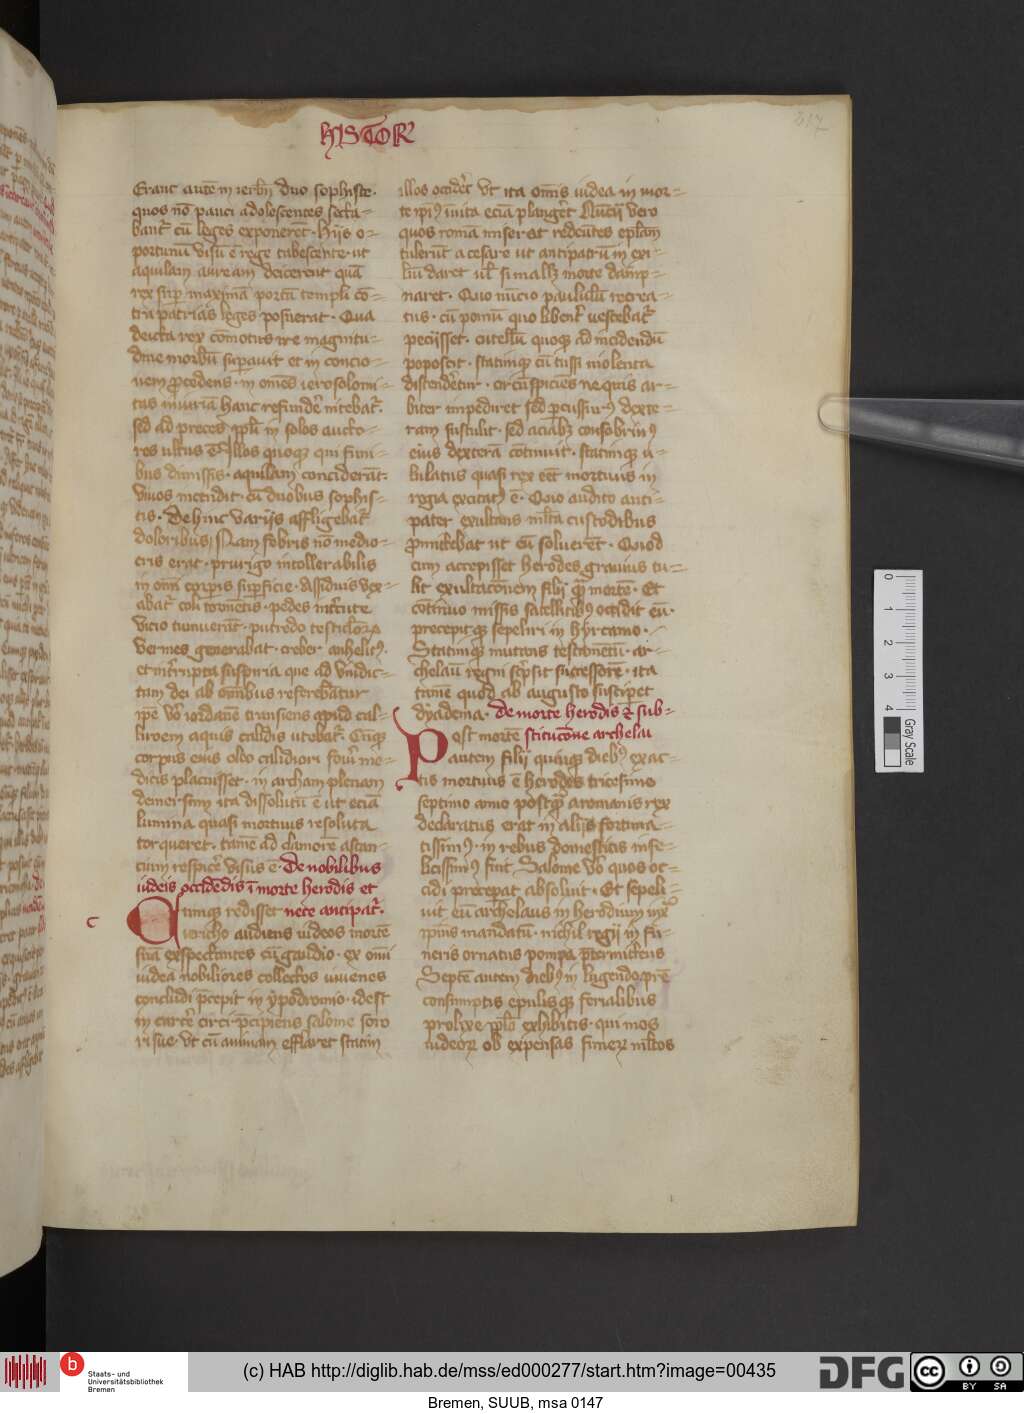 HISTOR
317
Erant autē in ierlm̄ duo sophiste·
quos nō pauci adolescentes secta-
bant̄ cū leges exponerēt· hijs o-
portunū visū ē rege tabescente· ut
aquilam auream deicerent quā
rex sup maximā portā templi cō-
tra patrias leges posuerat· Qua
deiecta rex cōmotus ire magnitu-
dine morbū supauit et in concio-
nem pcedens· in om̄es ierosolomi-
tas iniuriā hanc refundēr nitebat̄·
sed ad preces ppli in solos aucto-
res ultus ē Illos quoqꝫ qui funi-
bus dimissis· aquilam conciderāt·
viuos incendit· cū duobus sophis-
tis· Dehinc varijs affligebat̄
doloribus Nam febris nō medio-
cris erat· prurigo intollerabilis
in om̄i corpis supficie· Assiduis vex-
abat̄ coli tormētis· pedes int̄cute
vicio tumuerāt· putredo testiclōrꝫ
vermes generabat· creber anhelitꝰ·
et int̄rupta suspiria que ad vindic-
tam dei ab om̄ibus referebātur
ipē vō iordanē transiens apud cal-
liroem aquis calidis utebat̄· Cūqꝫ
corpus eius oleo calidiori fouēr me-
dicis placuisset· in archam plenam
demersum ita dissolutū ē ut eciā
lumina quasi mortuus resoluta
torqueret· tamē ad clamorē astan-
cium respicēr visus ē· De nobilibus
iudeis occidēdis ī morte herodis et
Cumqꝫ redisset nece antipat̄·
iericho audiens iudeos mortē
suā exspectantes cū gaudio· ex om̄i
iudea nobiliores collectos iuuenes
concludi p̄cepit in ypodromio· idest
in carcēr circi· p̄cipiens salome soro
ri sue· vt cū animam efflaret statim
illos occidēt vt ita om̄is iudea in mor-
te ipiꝰ inuita eciā plangēt Nūcij vero
quos romā miserat redeūtes eplam
tulerūt a cesare ut antipatrū in exi-
liū daret uł si mallꝫ morte damp-
naret· Quo nūcio paululū recrea-
tus· cū pomū quo libent̄ vescebat̄
pecijsset· cutellū quoqꝫ ad incidendū
poposcit· statimqꝫ cū tussi violenta
distendēretur· circūspiciēs ne quis ar-
biter impediret sed pcussurꝰ dexte-
ram sustulit· sed aciabꝫ consobrinꝰ
eius dexterā cōtinuit· statimqꝫ u-
lulatus quasi rex eēt mortuus in
regia excitatꝰ ē· Quo audito anti-
pater exultans mlta custodibus
pmittebat ut eū soluerēt· Quod
cum accepisset herodes grauius tu-
lit exultacōnem filij qꝫ mortē· Et
cōtinuo missis satellitibꝰ occidit eū·
precepitqꝫ sepeliri in hyrcanio·
Statimqꝫ mutans testamētū· ar-
chelaū regni scpsit successorē· ita
tamē quod ab augusto susciperet
dyadema· De morte herodis et sub-
Post mortē stitucōne archelai
autem filij quinqꝫ diebꝰ exac-
tis mortuus ē herodes tricesimo
septimo anno postqꝫ a romanis rex
declaratus erat in alijs fortuna-
tissimꝰ· in rebus domesticis infe-
licissimꝰ fuit Salome vō quos oc-
cidi preceperat absoluit· Et sepeli-
uit eū archelaus in herodium iuxᵃ
ipius mandatū· nichil regij in fu-
neris ornatus pompa p̄termittens
Septē autem diebꝰ in lugendo pr̄e
consumptis epulisqꝫ ferialibus
prolixe pplo exhibitis· qui mos
iudeorꝫ ob expensas funerꝫ mltos
0
1
2
3
4
Gray Scale
b
Staats- und
Universitätsbibliothek
Bremen
(c) HAB http://diglib.hab.de/mss/ed000277/start.htm?image=00435
DFG
cc
BY SA
Bremen, SUUB, msa 0147